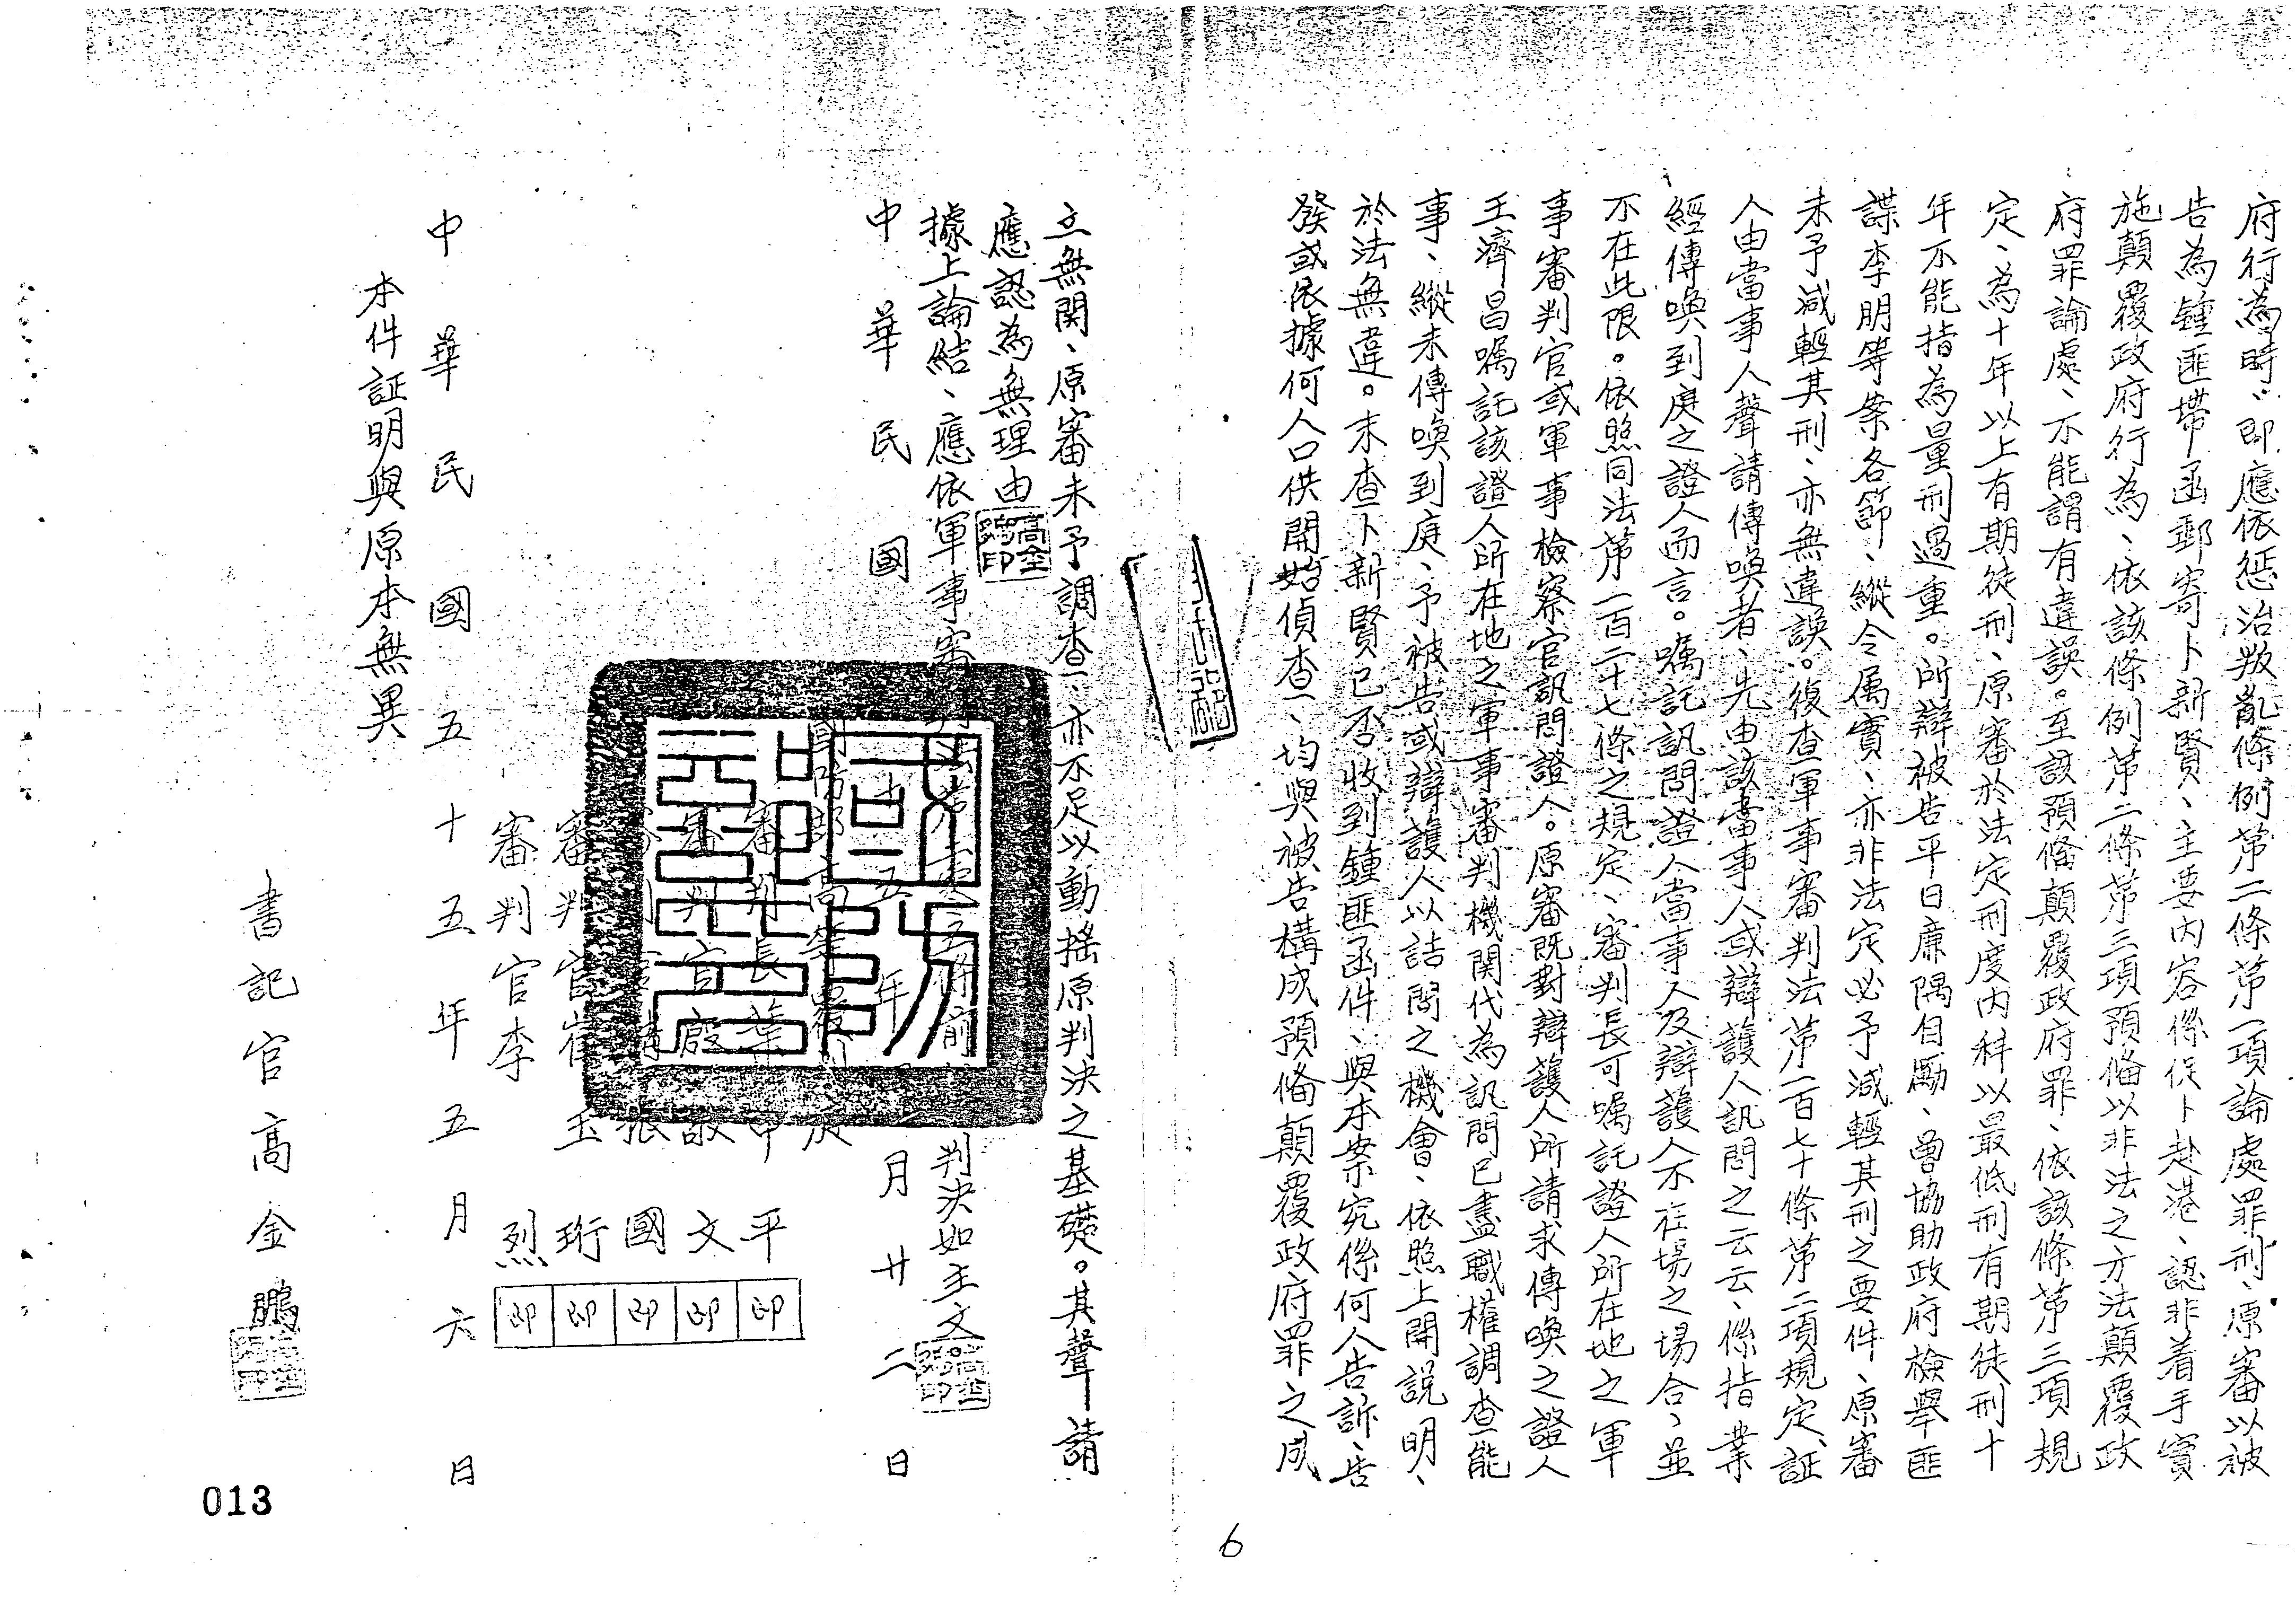 府行為時、即應依惩治叛亂條例第二條第一項論處罪刑、原審以被
告為鍾匪㙯函郵寄卜新賢、主要內容係促卜赴港、認非着手實
施顛覆政府行為、依該條例第二條第三項預偹以非法之方法顛覆政
府罪論處、不能謂有違誤。至該預偹顛覆政府罪、依該條第三項規
定、為十年以上有期徒刑、原審於法定刑度內科以最低刑有期徒刑十
年不能指為量刑過重。所辯被告平日廉隅自勵、曾協助政府檢舉匪
諜李明等案各節、縱令属實、亦非法定必予減輕其刑之要件、原審
未予減輕其刑、亦無違誤。復查軍事審判法第一百七十條第二項規定、証
人由當事人聲請傳喚者、先由該當事人或辯護人訊問之云云、係指業
經傳喚到庭之證人而言。嘱託訊問證人當事人及辯護人不在場之場合、並
不在此限。依照同法第一百二十七條之規定、審判長可嘱託證人所在地之軍
事審判官或軍事檢察官訊問證人。原審既對辯護人所請求傳喚之證人
王濟昌嘱託該證人所在地之軍事審判機関代為訊問已盡職權調查能
事、縱未傳喚到庭、予被告或辯護人以詰問之機會、依照上開說明、
於法無違。未查卜新賢已否收到鍾匪函件、與本案究係何人告訴、告
發或依據何人口供開始偵查、均與被告構成預偹顛覆政府罪之成
立無関、原審未予調查、亦不足以動搖原判決之基礎。其聲請
應認為無理由
據上論結、應依軍事審 判決如主文
中華民國五十五年 月廿二日
審判長葉 平
審判官殷敬文
振國
審判官崔玉珩
審判官李烈
印 印 印 印 印
中華民國五十五年五月六日
本件証明與原本無異
書記官高金鵬
013
6